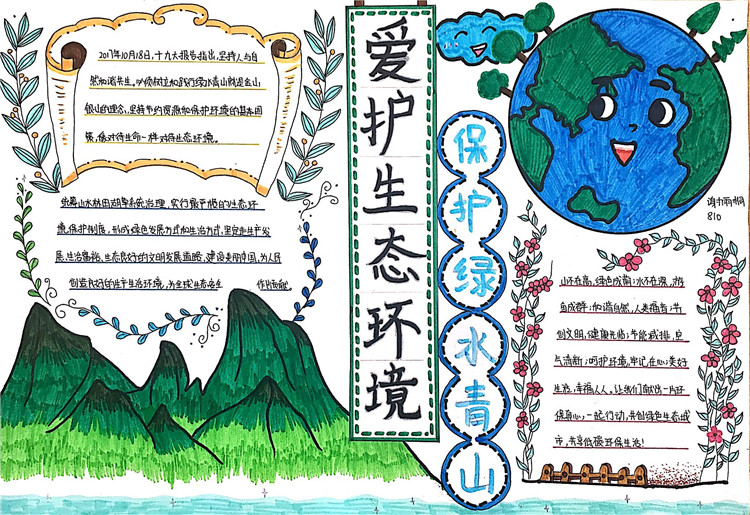 2017年10月18日,十九大报告指出,坚持人与自
然和谐共生。必须树立和践行绿水青山就是金山
银山的理念,坚持节约资源和保护环境的基本国
策,像对待生命一样对待生态环境。
统筹山水林田湖草系统治理,实行最严格的生态环
境保护制度,形成绿色发展方式和生活方式,坚定走生产发
展、生活富裕、生态良好的文明发展道路,建设美丽中国,为人民
创造良好的生产生活环境,为全球生态安全作出贡献。
爱护生态环境
保护绿水青山
810
山不在高,绿色成荫;水不在深,
鱼成群;和谐自然,人类福音;节
创文明,健康光临;节能减排,空
气清新;呵护环境,牢记在心;美好
生活,幸福人人。让我们献出一片环
保真心,一起行动,共创绿色生态城
市,共享低碳环保生活!